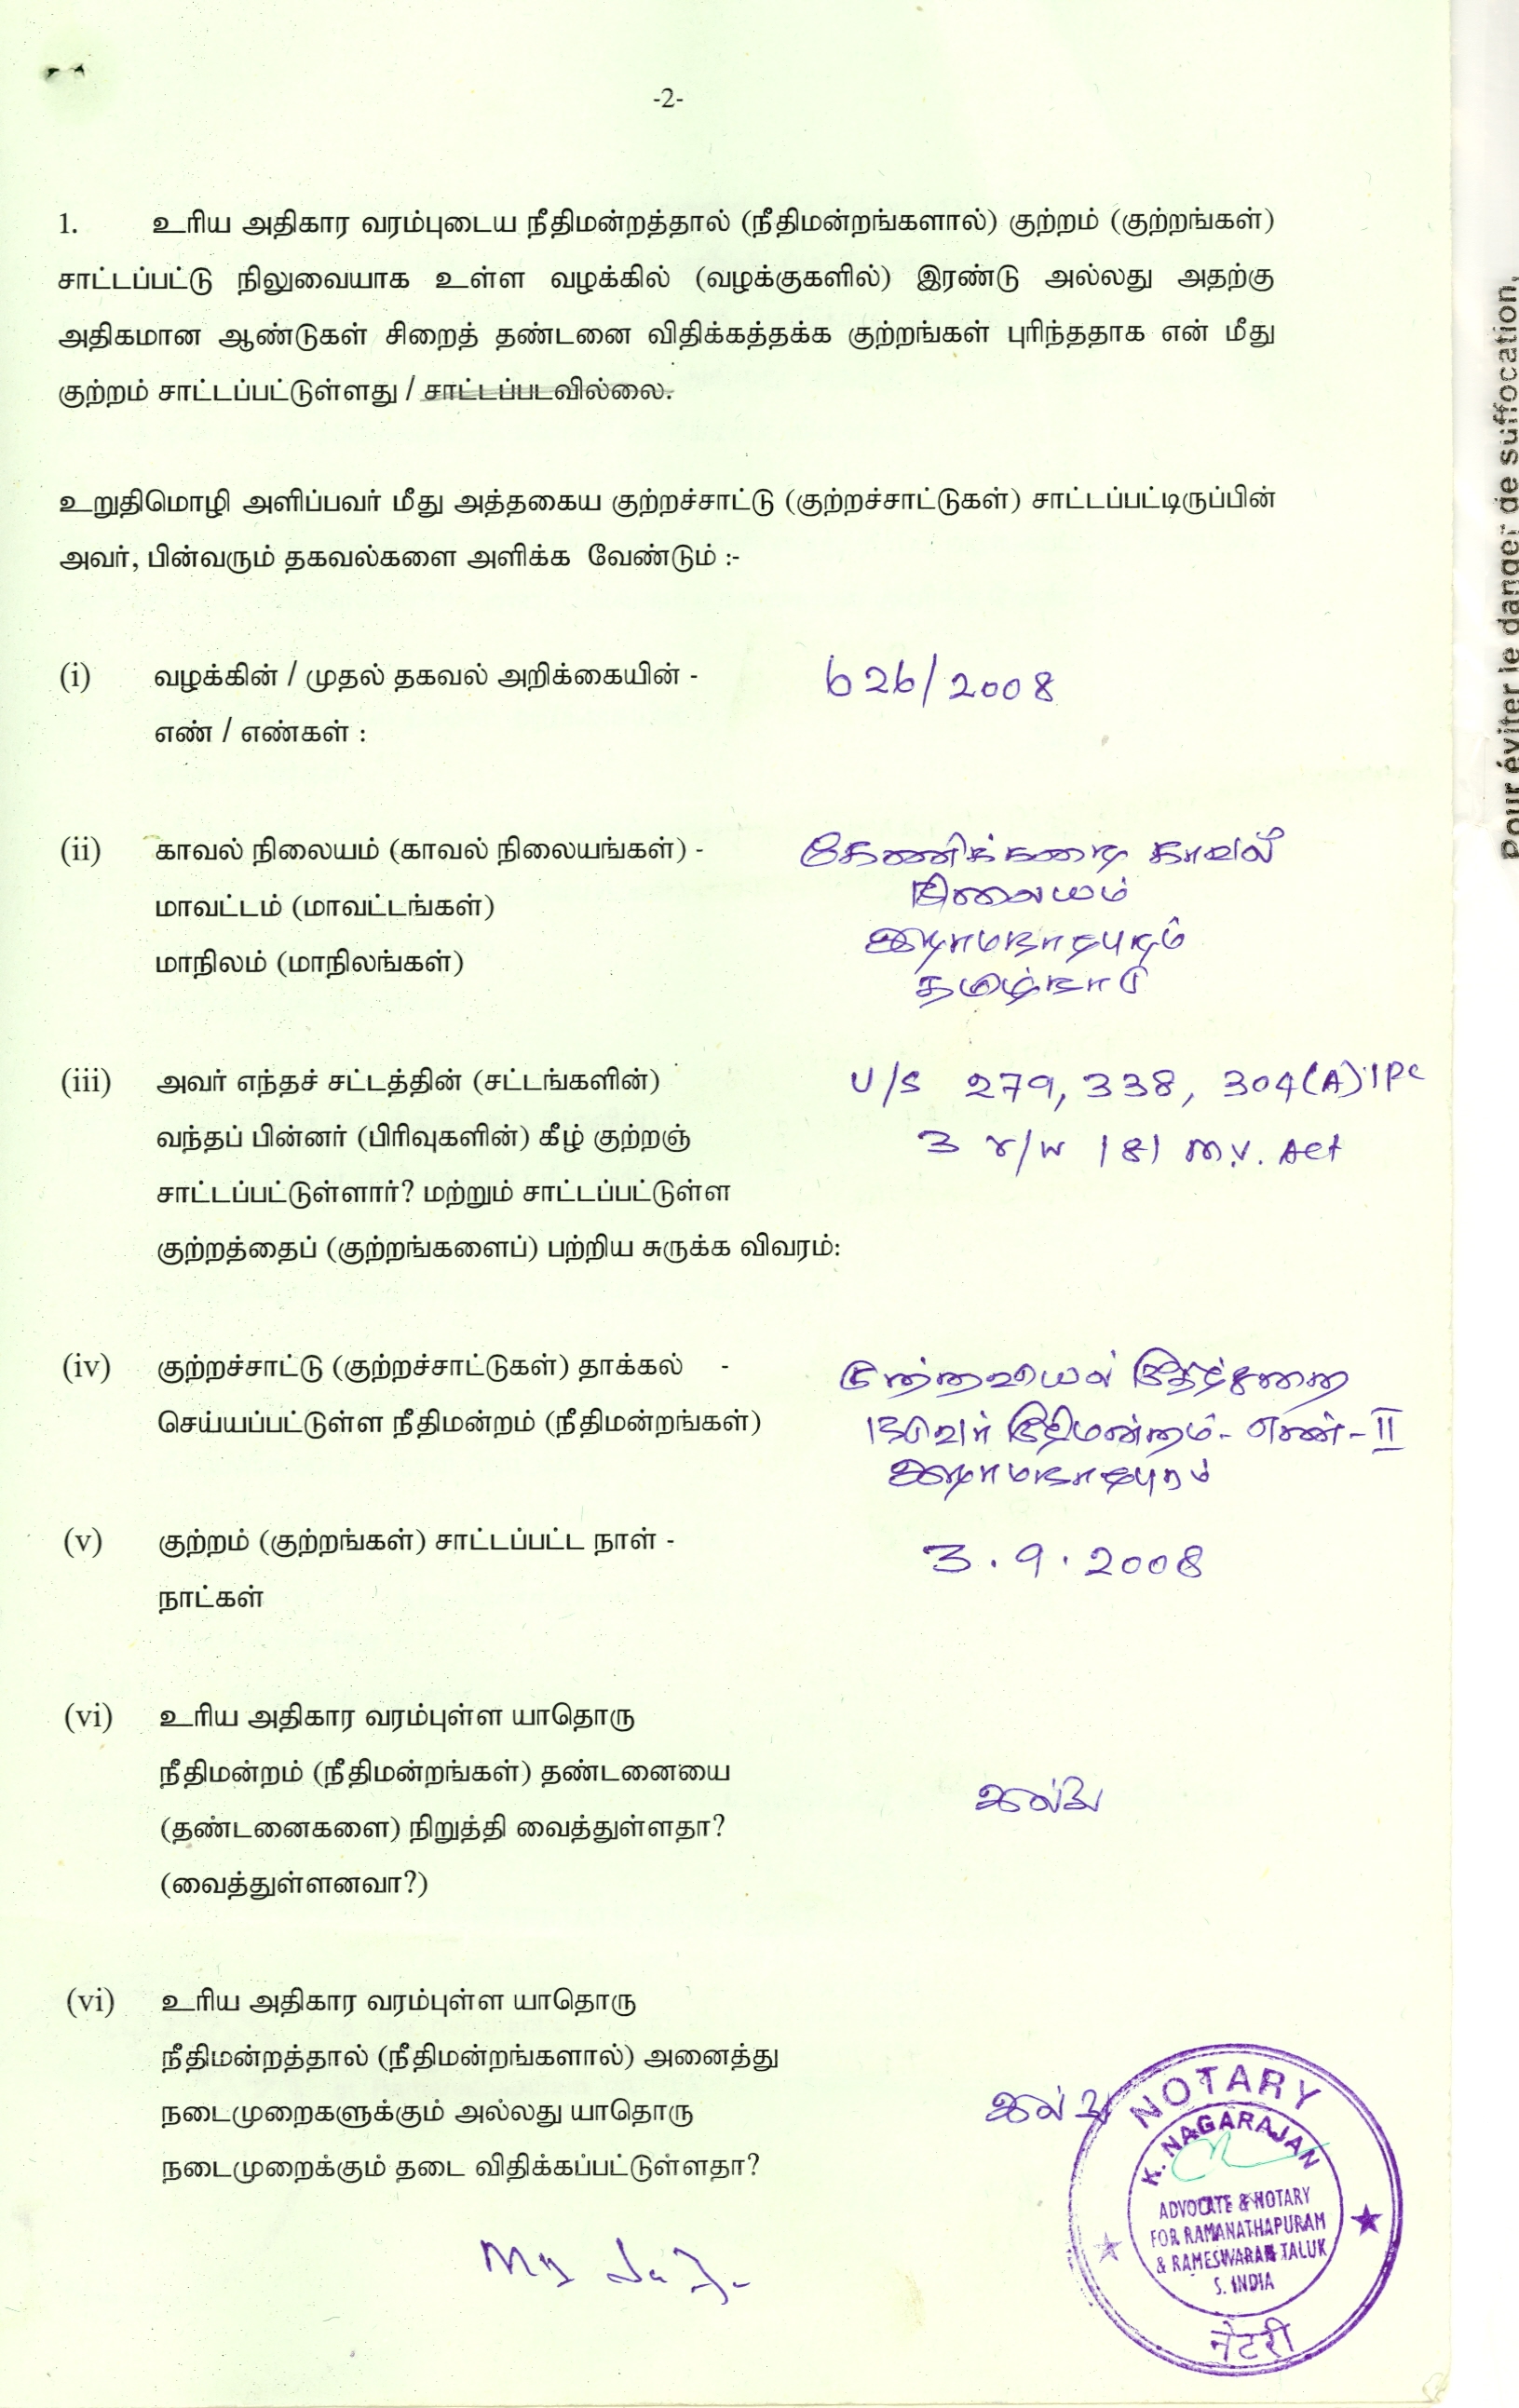 -2-
1. உரிய அதிகார வரம்புடைய நீதிமன்றத்தால் (நீதிமன்றங்களால்) குற்றம் (குற்றங்கள்)
சாட்டப்பட்டு நிலுவையாக உள்ள வழக்கில் (வழக்குகளில்) இரண்டு அல்லது அதற்கு
அதிகமான ஆண்டுகள் சிறைத் தண்டனை விதிக்கத்தக்க குற்றங்கள் புரிந்ததாக என் மீது
குற்றம் சாட்டப்பட்டுள்ளது / சாட்டப்படவில்லை.
உறுதிமொழி அளிப்பவர் மீது அத்தகைய குற்றச்சாட்டு (குற்றச்சாட்டுகள்) சாட்டப்பட்டிருப்பின்
அவர், பின்வரும் தகவல்களை அளிக்க வேண்டும் :-
(i) வழக்கின் / முதல் தகவல் அறிக்கையின் - 626/2008
எண் / எண்கள் :
(ii) காவல் நிலையம் (காவல் நிலையங்கள்) - கேணிக்கரை காவல்
நிலையம்
மாவட்டம் (மாவட்டங்கள்) இராமநாதபுரம்
மாநிலம் (மாநிலங்கள்) தமிழ்நாடு
(iii) அவர் எந்தச் சட்டத்தின் (சட்டங்களின்) U/S 279, 338, 304(A) IPC
வந்தப் பின்னர் (பிரிவுகளின்) கீழ் குற்றஞ் 3 r/w 181 M.V. Act
சாட்டப்பட்டுள்ளார்? மற்றும் சாட்டப்பட்டுள்ள
குற்றத்தைப் (குற்றங்களைப்) பற்றிய சுருக்க விவரம்:
(iv) குற்றச்சாட்டு (குற்றச்சாட்டுகள்) தாக்கல் - குற்றவியல்
செய்யப்பட்டுள்ள நீதிமன்றம் (நீதிமன்றங்கள்) நடுவர் நீதிமன்றம் - எண் - II
இராமநாதபுரம்
(v) குற்றம் (குற்றங்கள்) சாட்டப்பட்ட நாள் - 3.9.2008
நாட்கள்
(vi) உரிய அதிகார வரம்புள்ள யாதொரு
நீதிமன்றம் (நீதிமன்றங்கள்) தண்டனையை
(தண்டனைகளை) நிறுத்தி வைத்துள்ளதா? இல்லை
(வைத்துள்ளனவா?)
(vi) உரிய அதிகார வரம்புள்ள யாதொரு
நீதிமன்றத்தால் (நீதிமன்றங்களால்) அனைத்து
நடைமுறைகளுக்கும் அல்லது யாதொரு இல்லை
நடைமுறைக்கும் தடை விதிக்கப்பட்டுள்ளதா?
NOTARY
K. NAGARAJAN
ADVOCATE & NOTARY
FOR RAMANATHAPURAM
& RAMESWARAM TALUK
S. INDIA
नोटरी
Pour éviter le danger de suffocation,